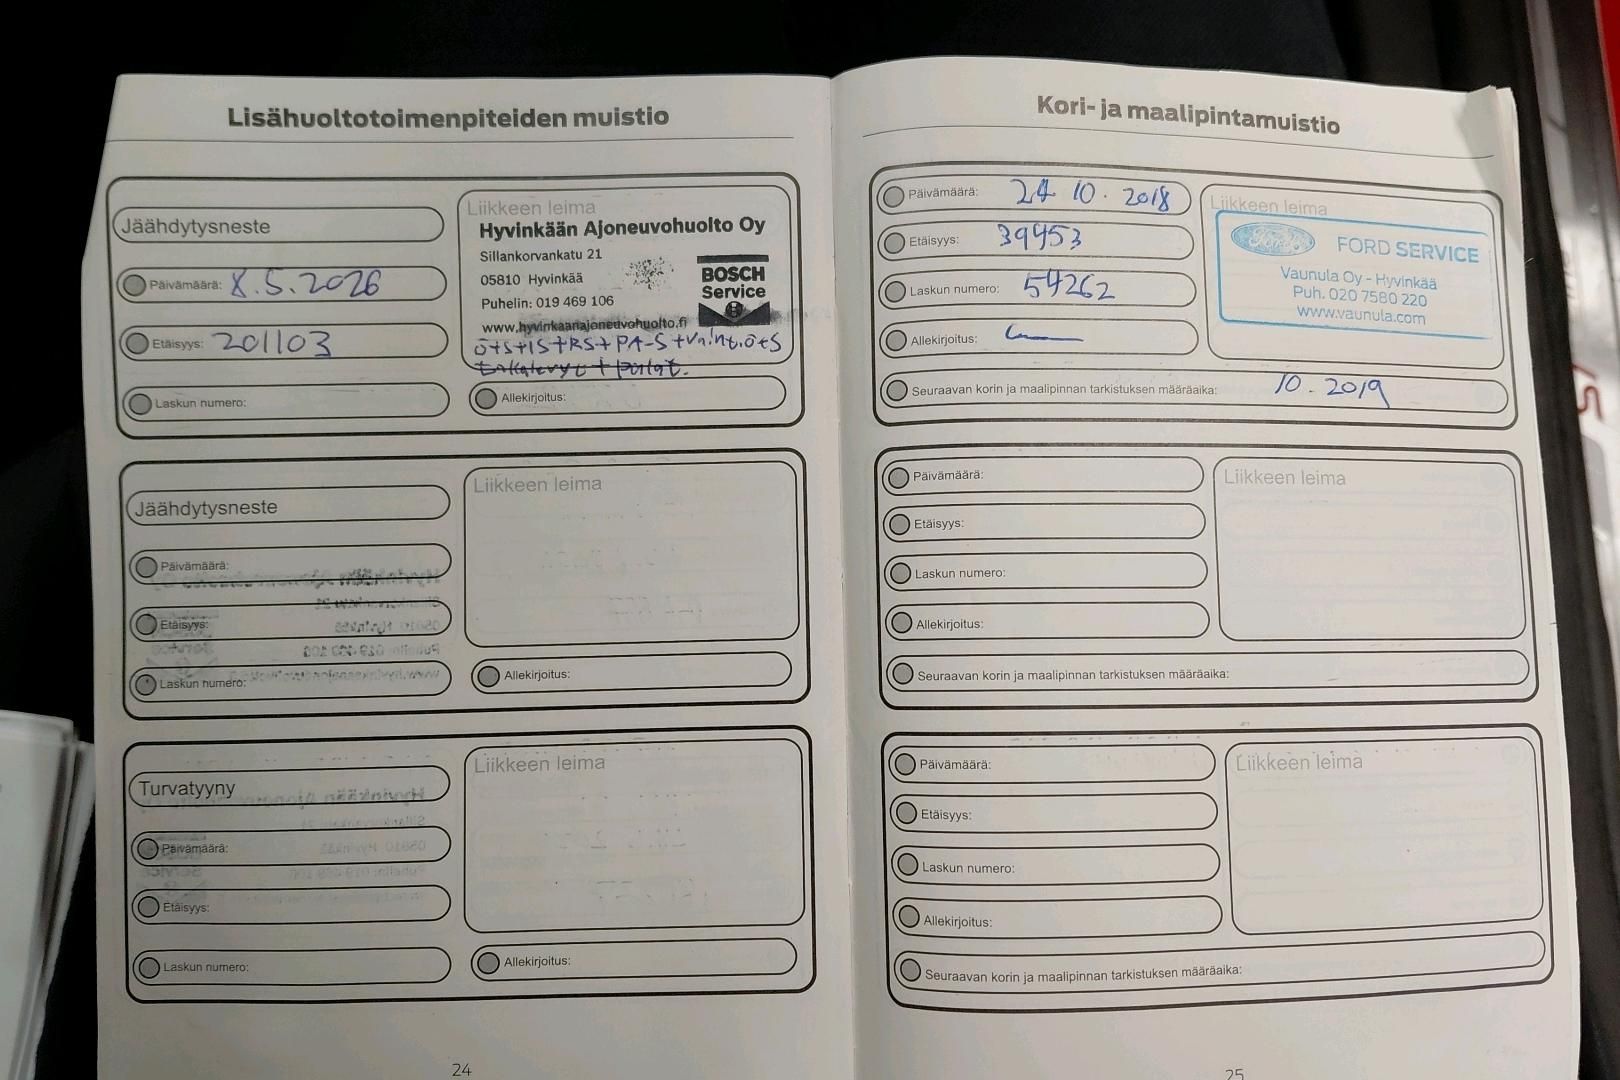 Lisähuoltotoimenpiteiden muistio
Jäähdytysneste
Päivämäärä: 8.5.2026
Etäisyys: 201103
Laskun numero:
Liikkeen leima
Hyvinkään Ajoneuvohuolto Oy
Sillankorvankatu 21
05810 Hyvinkää
Puhelin: 019 469 106
www.hyvinkaanajoneuvohuolto.fi
BOSCH
Service
ö+s+IS+RS+PA-S+vaiht.ö+s
takalevyt + palat.
Allekirjoitus:
Jäähdytysneste
Päivämäärä:
Etäisyys:
Laskun numero:
Liikkeen leima
Allekirjoitus:
Turvatyyny
Päivämäärä:
Etäisyys:
Laskun numero:
Liikkeen leima
Allekirjoitus:
24
Kori- ja maalipintamuistio
Päivämäärä: 24 10. 2018
Etäisyys: 39953
Laskun numero: 54262
Allekirjoitus:
Liikkeen leima
Ford
FORD SERVICE
Vaunula Oy - Hyvinkää
Puh. 020 7580 220
www.vaunula.com
Seuraavan korin ja maalipinnan tarkistuksen määräaika: 10. 2019
Päivämäärä:
Etäisyys:
Laskun numero:
Allekirjoitus:
Liikkeen leima
Seuraavan korin ja maalipinnan tarkistuksen määräaika:
Päivämäärä:
Etäisyys:
Laskun numero:
Allekirjoitus:
Liikkeen leima
Seuraavan korin ja maalipinnan tarkistuksen määräaika:
25